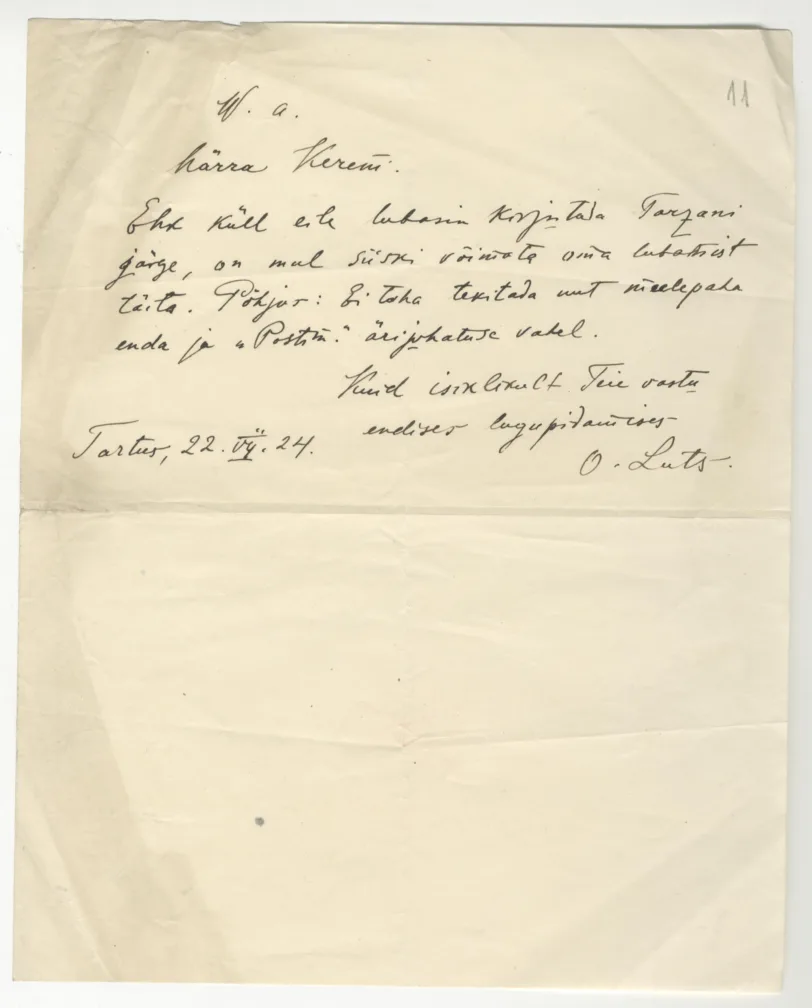 11
W. a.
härra Kerem.
Ehk küll eile lubasin kirjutada Tarzani
järge, on mul siiski võimata oma lubamist
täita. Põhjus: Ei taha tekitada uut meelepaha
enda ja „Postim.“ ärijuhatuse vahel.
Kuid isiklikult Teie vastu
endises lugupidamises
Tartus, 22. VII. 24.
O. Luts.